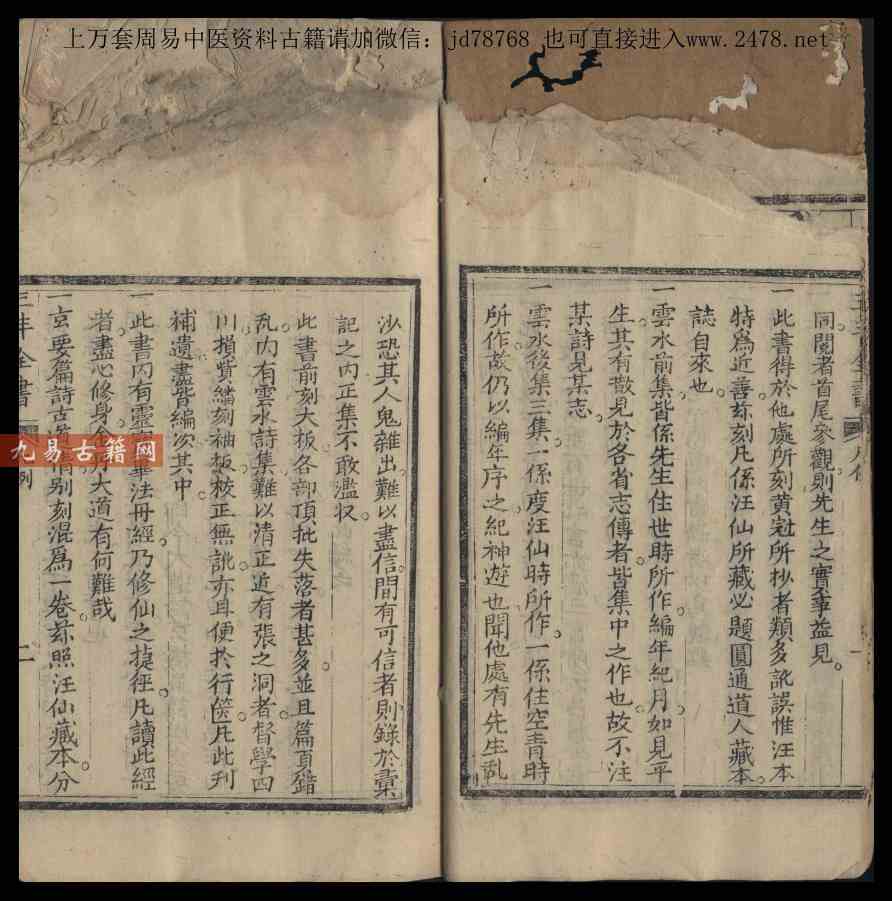 上万套周易中医资料古籍请加微信： jd78768 也可直接进入www.2478.net
同閱者首尾參觀則先生之實事益見
一此書得於他處所刻黃冠所抄者類多訛誤惟汪本
特爲近善玆刻凡係汪仙所藏必題圓通道人藏本
誌自來也
一雲水前集皆係先生住世時所作編年紀月如見平
生其有散見於各省志傳者皆集中之作也故不注
某詩見某志
一雲水後集三集一係度汪仙時所作一係住空青時
所作故仍以編年序之紀神遊也聞他處有先生乱
沙恐其人鬼雜出難以盡信間有可信者則錄於彙
記之內正集不敢濫収
此書前刻大板各部頂批失落者甚多並且篇頁錯
乱內有雲水詩集難以清正近有張之洞者督學四
川捐貲繙刻袖板校正無訛亦且便於行篋凡此刋
補遺盡皆編次其中
一此書內有靈 畢法丹經乃修仙之捷徑凡讀此經
者盡心修身 大道有何難哉
一玄要篇詩古 情别刻混爲一卷玆照汪仙藏本分
全書
例
九易古籍网